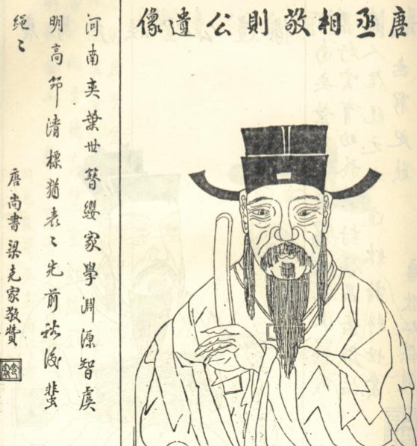 唐丞相敬則公遺像
河南奕葉世簪纓家學淵源智虞
明高節清標猶表〻光前裕後
唐尚書梁克家敬贊